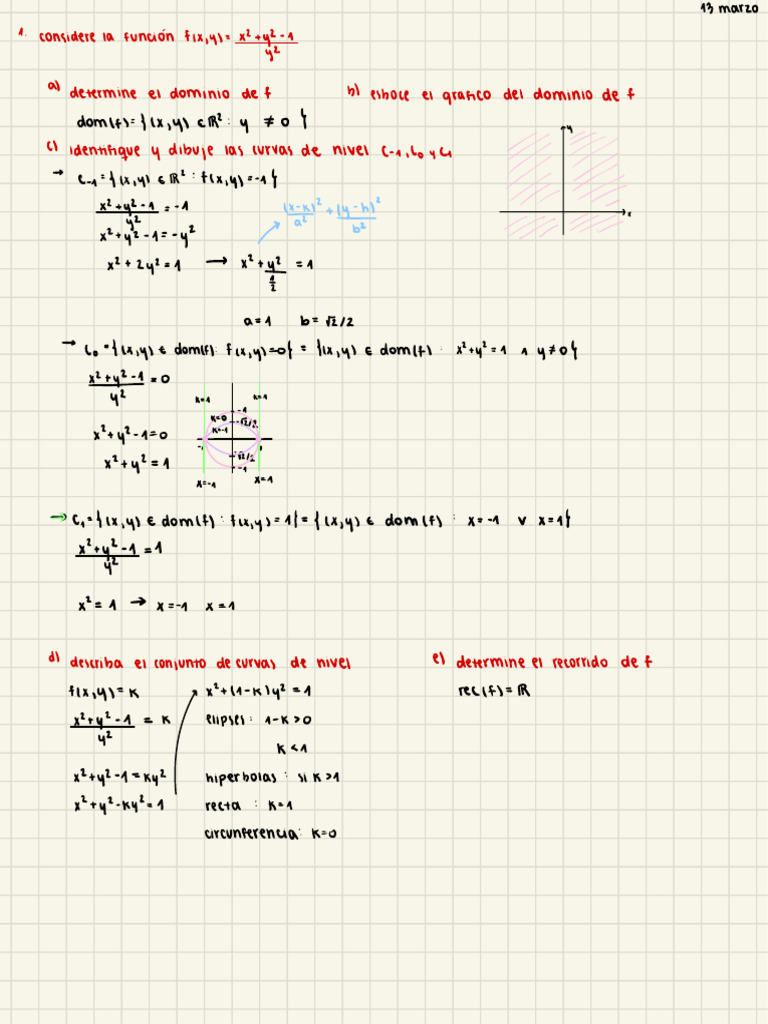 13 marzo
1. considere la función f(x,y) = x² + y² - 1 / y²
a) determine el dominio de f
dom(f) = {(x,y) ∈ ℝ² : y ≠ 0}
b) esboce el grafico del dominio de f
y
x
c) identifique y dibuje las curvas de nivel C-1, C0 y C1
→ C-1 = {(x,y) ∈ ℝ² : f(x,y) = -1}
x² + y² - 1 / y² = -1
(x-k)² / a² + (y-h)² / b²
x² + y² - 1 = -y²
x² + 2y² = 1 → x² + y² / 1/2 = 1
a = 1 b = √2/2
→ C0 = {(x,y) ∈ dom(f) : f(x,y) = 0} = {(x,y) ∈ dom(f) : x² + y² = 1 ∧ y ≠ 0}
x² + y² - 1 / y² = 0
x² + y² - 1 = 0
x² + y² = 1
k=1 k=1
-1
k=0 -√2/2
k=-1
-1 1
-√2/2
-1
x=-1 x=1
→ C1 = {(x,y) ∈ dom(f) : f(x,y) = 1} = {(x,y) ∈ dom(f) : x = -1 ∨ x = 1}
x² + y² - 1 / y² = 1
x² = 1 → x = -1 x = 1
d) describa el conjunto de curvas de nivel
f(x,y) = k
x² + y² - 1 / y² = k
x² + y² - 1 = ky²
x² + y² - ky² = 1
x² + (1-k)y² = 1
elipses: 1-k > 0
k < 1
hiperbolas : si k > 1
recta : k = 1
circunferencia: k = 0
e) determine el recorrido de f
rec(f) = ℝ